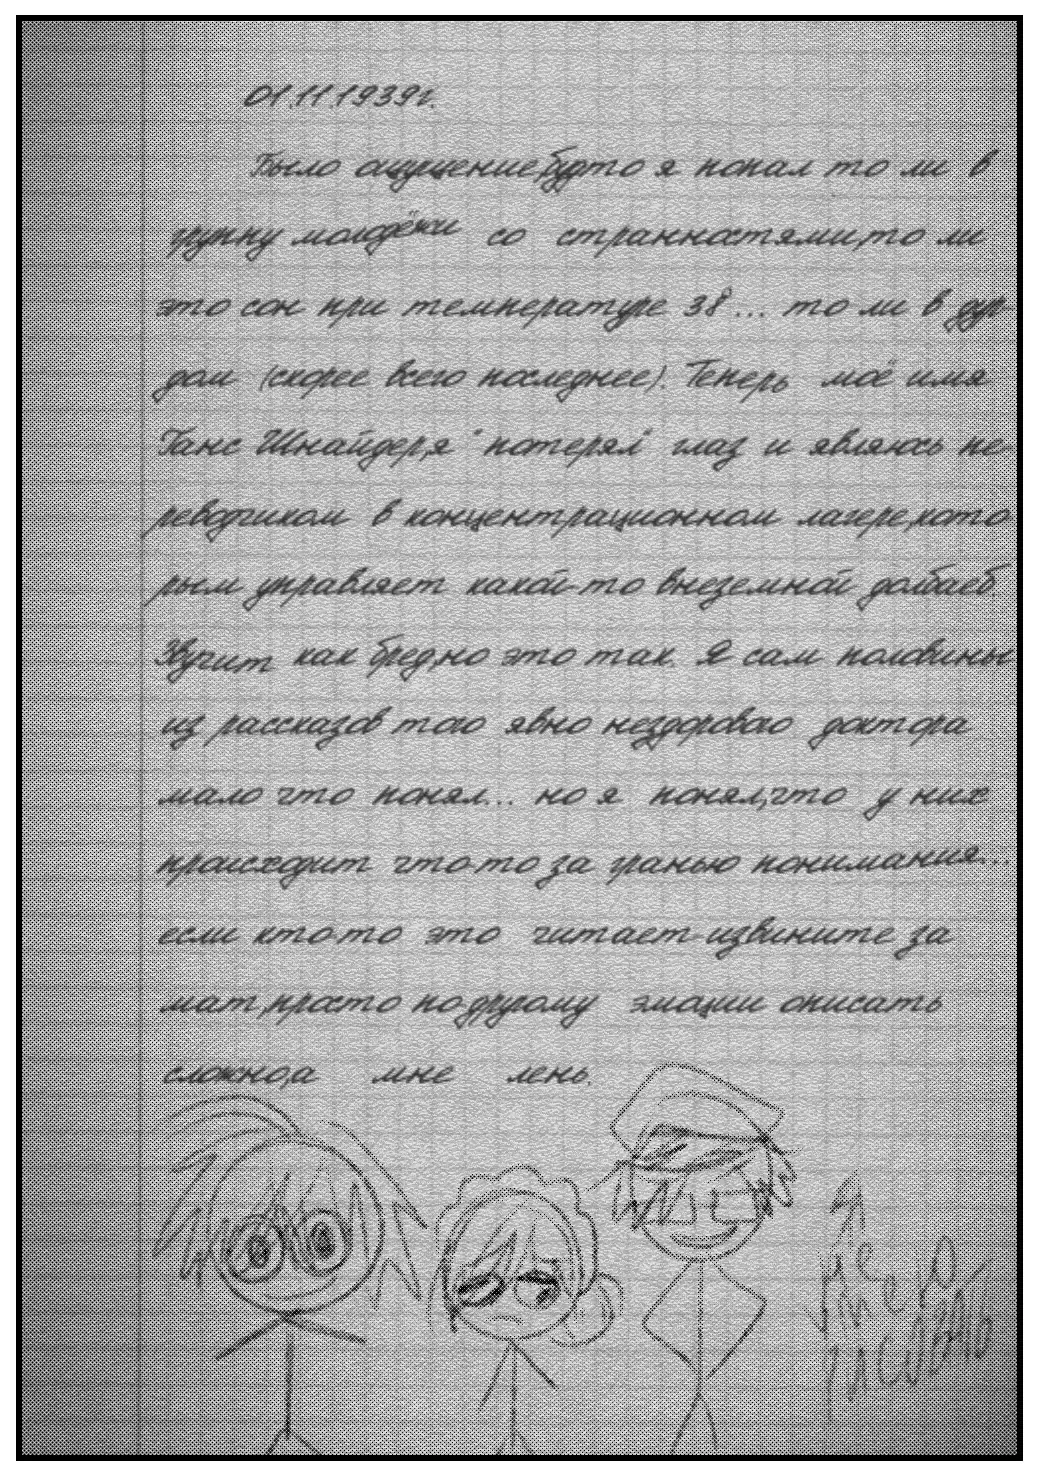 01.11.1939г.
Было ощущение,будто я попал то ли в
группу молодёжи со странностями,то ли
это сон при температуре 38... то ли в дур-
дом (скорее всего последнее). Теперь моё имя
Ганс Шнайдер,я "потерял" глаз и являюсь пе-
реводчиком в концентрационном лагере,кото
рым управляет какой-то внеземной долбаеб.
Звучит как бред,но это так. Я сам половины
из рассказов того явно нездорового доктора
мало что понял... но я понял,что у них
происходит что-то за гранью понимания...
если кто-то это читает-извините за
мат,просто по-другому эмоции описать
сложно,а мне лень.